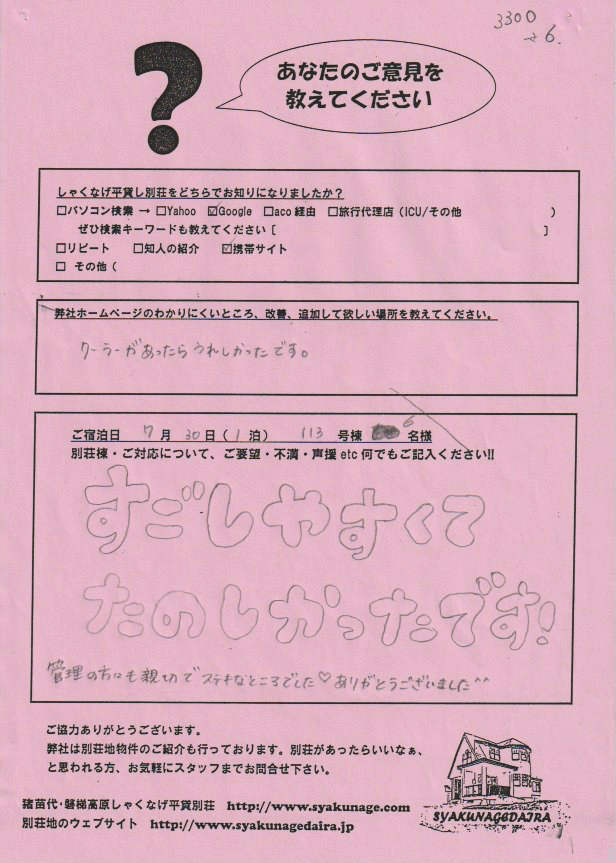 3300
あなたのご意見を
教えてください
しゃくなげ平貸し別荘をどちらでお知りになりましたか？
□パソコン検索 → □Yahoo ☑Google □aco経由 □旅行代理店（ICU/その他 ）
ぜひ検索キーワードも教えてください [ ]
□リピート □知人の紹介 ☑携帯サイト
□ その他（
弊社ホームページのわかりにくいところ、改善、追加して欲しい場所を教えてください。
クーラーがあったらうれしかったです。
ご宿泊日 7月 30日（1泊） 113 号棟 6 名様
別荘棟・ご対応について、ご要望・不満・声援 etc 何でもご記入ください!!
すごしやすくて
たのしかったです!
管理の方にも親切でステキなところでした♡ありがとうございました^^
ご協力ありがとうございます。
弊社は別荘地物件のご紹介も行っております。別荘があったらいいなぁ、
と思われる方、お気軽にスタッフまでお問合せ下さい。
猪苗代・磐梯高原しゃくなげ平貸別荘 http://www.syakunage.com
別荘地のウェブサイト http://www.syakunagedaira.jp
SYAKUNAGEDAIRA